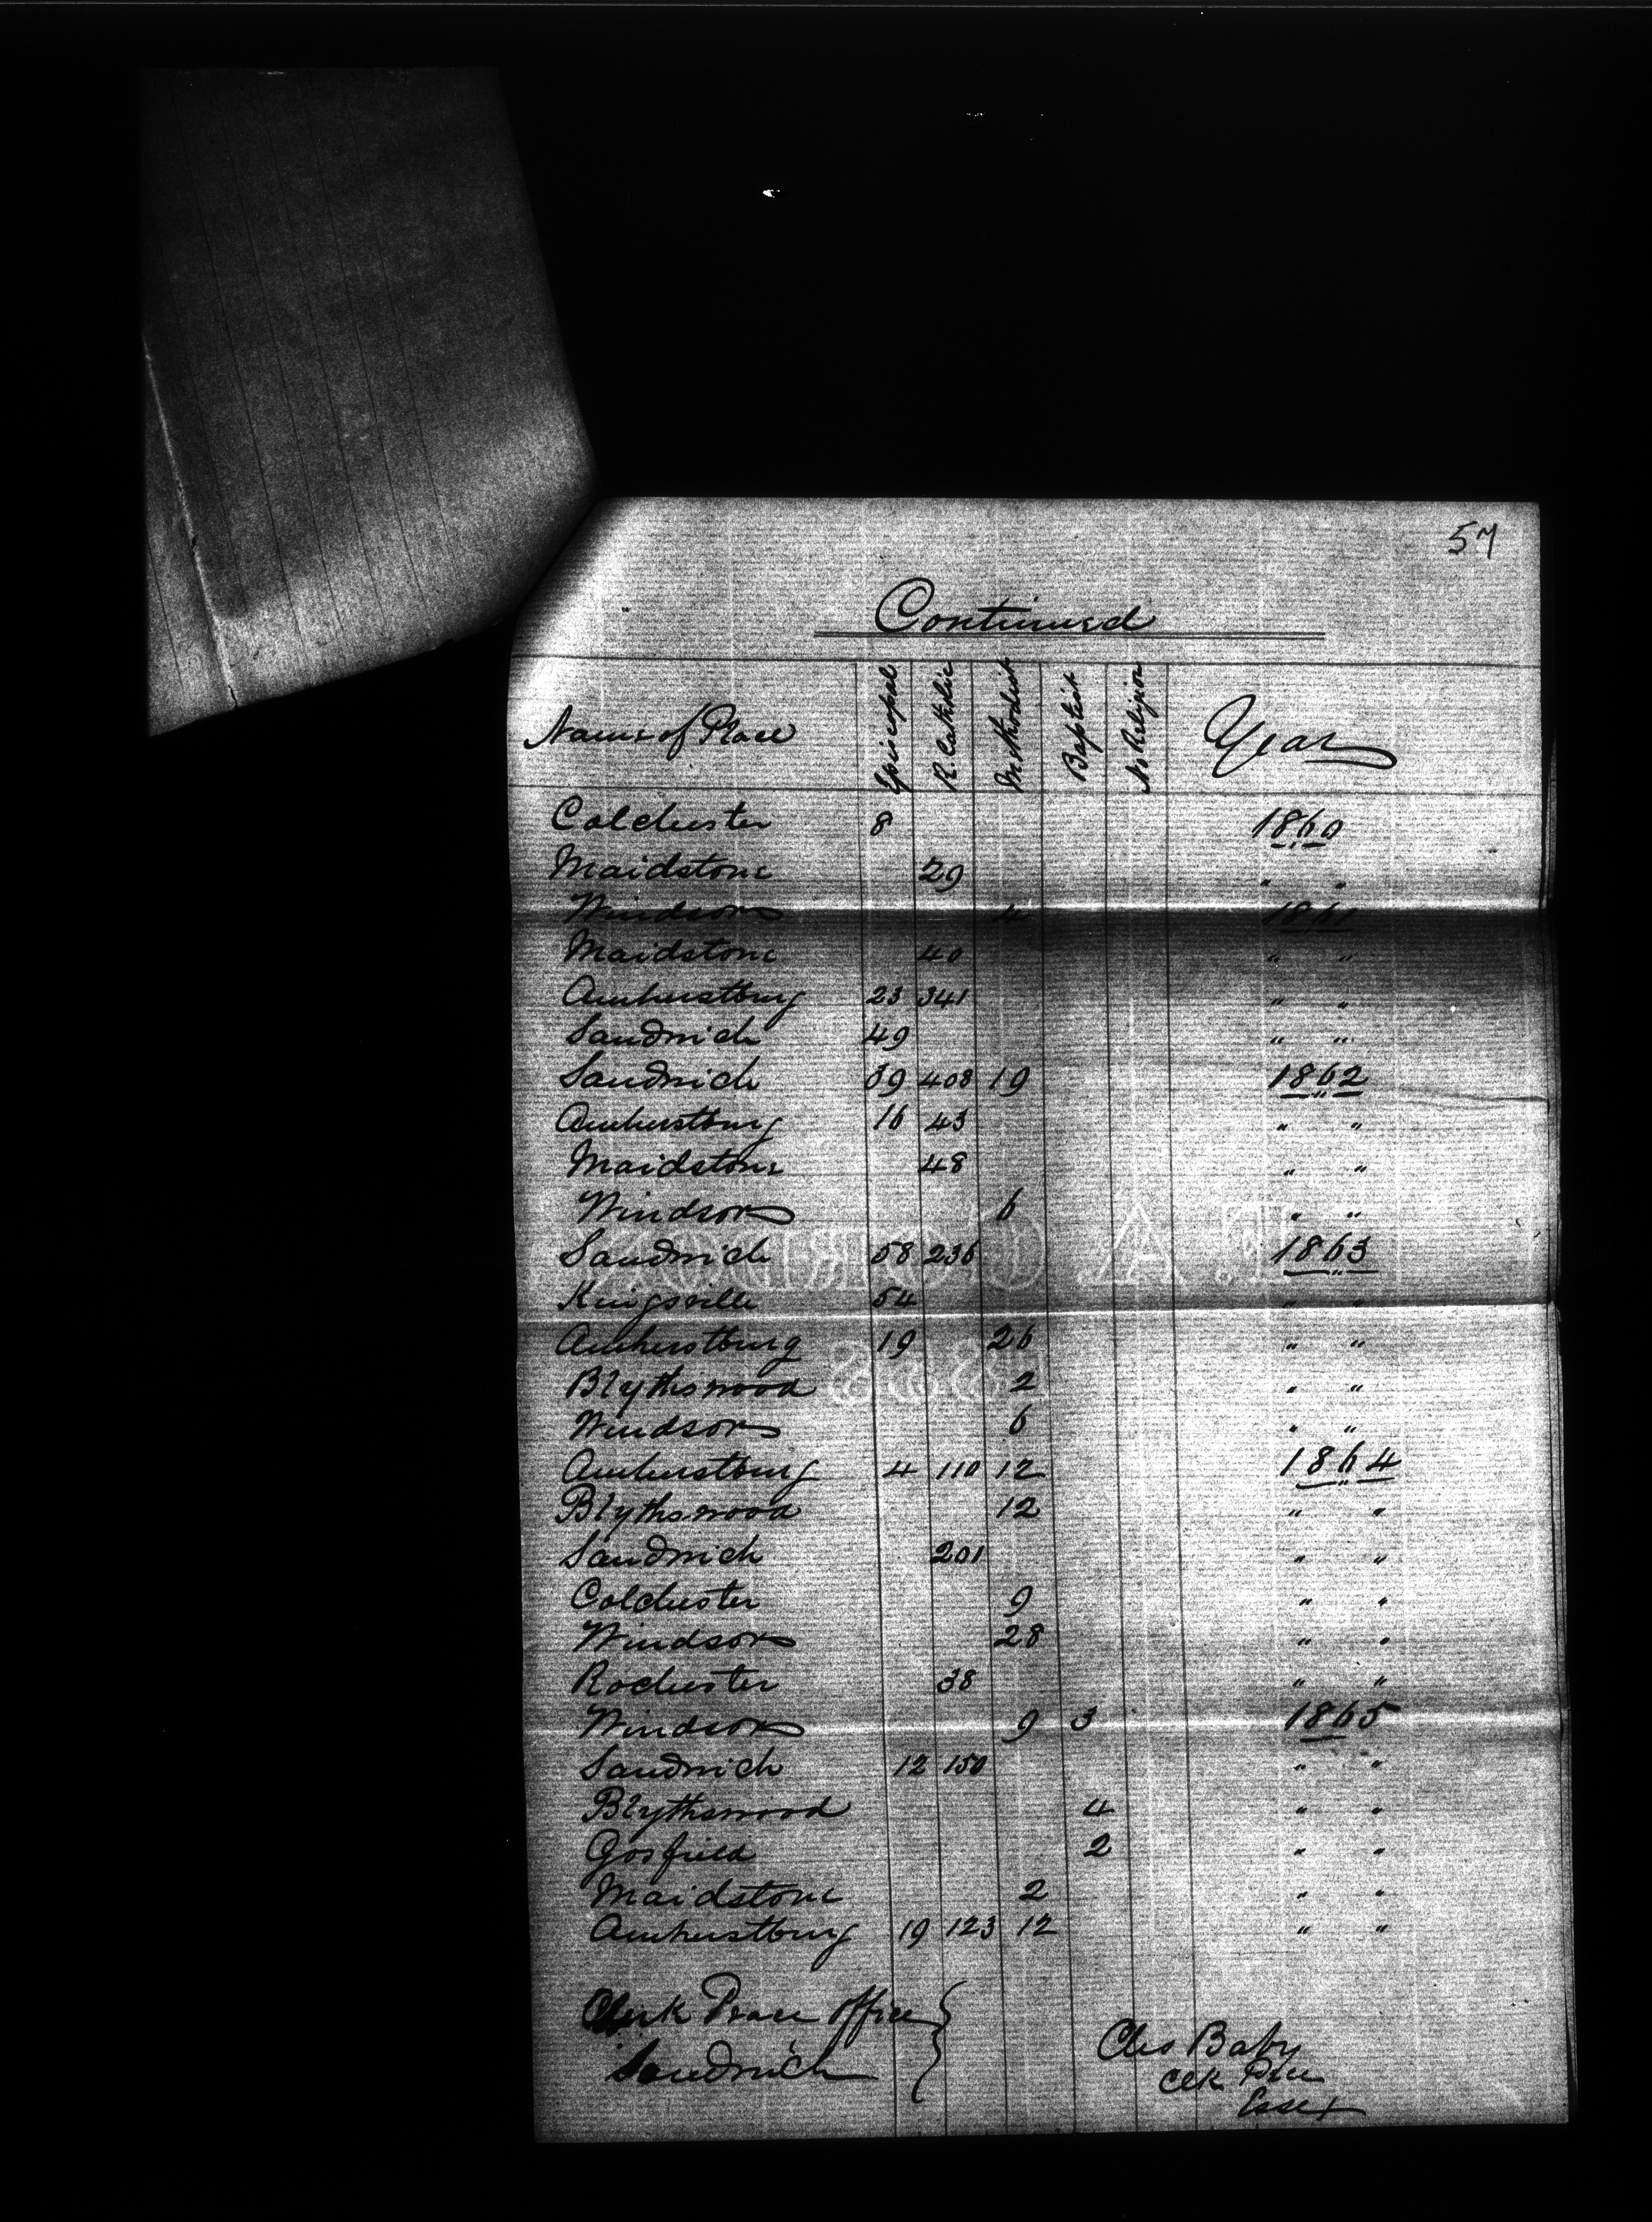 57
Continued
Name of Place Episcopal R. Catholic Methodist Baptist No Religion Year
Colchester 8 1860
Maidstone 29 " "
Windsor 4 1861
Maidstone 40 " "
Amherstburg 23 341 " "
Sandwich 49 " "
Sandwich 39 408 19 1862
Amherstburg 16 43 " "
Maidstone 48 " "
Windsor 6 " "
Sandwich 58 236 1863
Kingsville 54 " "
Amherstburg 19 26 " "
Blythswood 2 " "
Windsor 6 " "
Amherstburg 4 110 12 1864
Blythswood 12 " "
Sandwich 201 " "
Colchester 9 " "
Windsor 28 " "
Rochester 38 " "
Windsor 9 3 1865
Sandwich 12 150 " "
Blythswood 4 " "
Gosfield 2 " "
Maidstone 2 " "
Amherstburg 19 123 12 " "
Clerk Peace Office
Sandwich
Chs Baby
Clk Peace
Essex